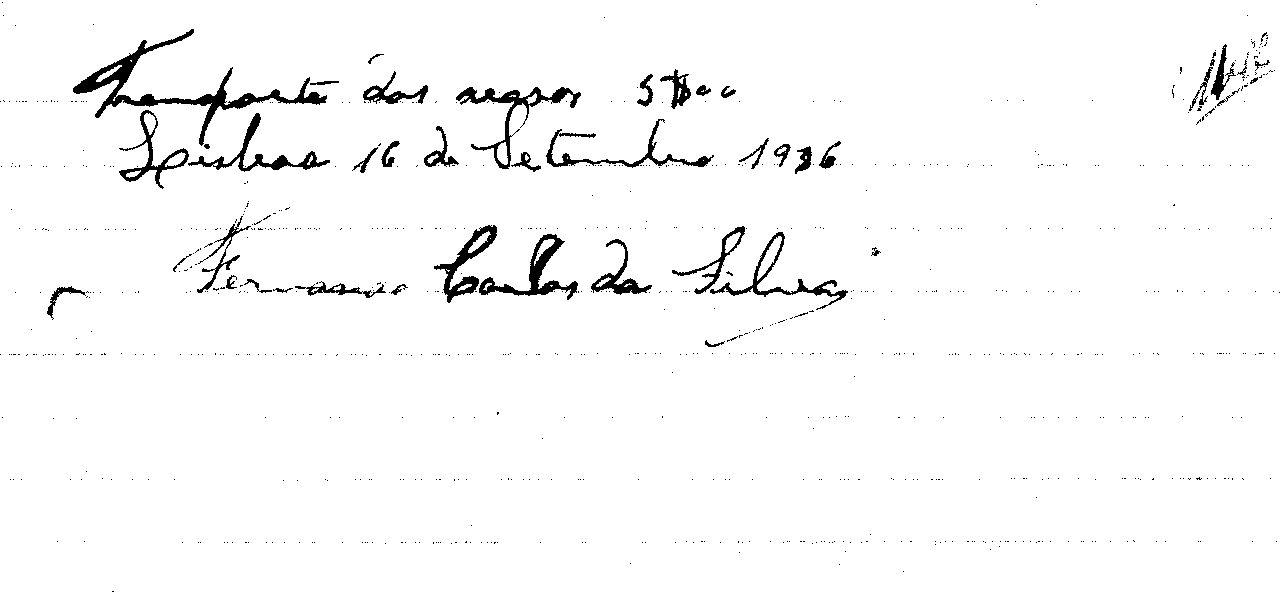 Transporte das 5$00
Lisboa 16 de Setembro 1936
Fernando Carlos da Silva